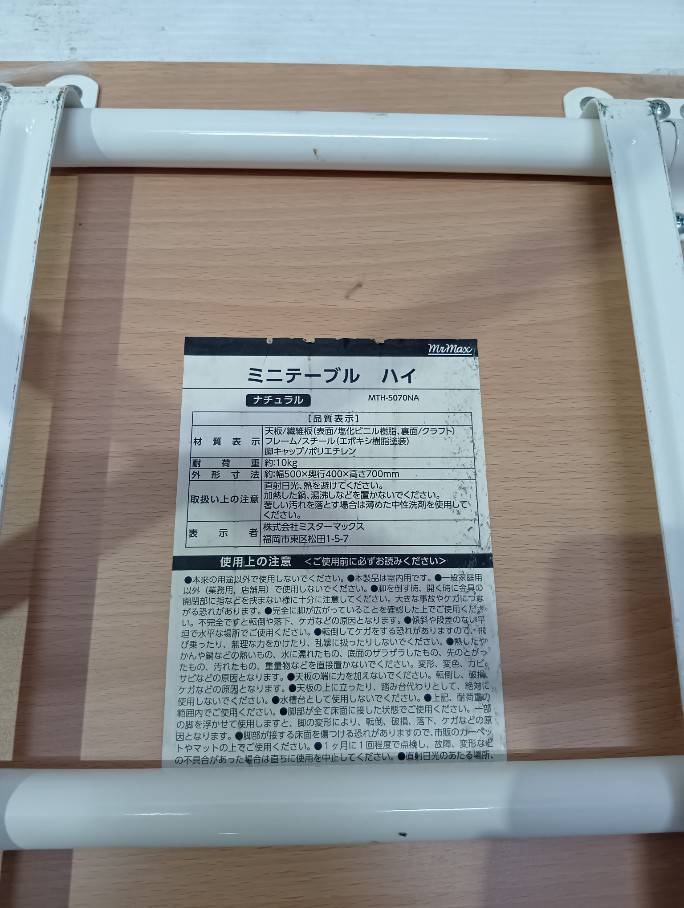 MrMax
ミニテーブル ハイ
ナチュラル MTH-5070NA
[品質表示]
材質表示 天板/繊維板(表面/塩化ビニル樹脂、裏面/クラフト)
フレーム/スチール(エポキシ樹脂塗装)
脚キャップ/ポリエチレン
耐荷重 約:10kg
外形寸法 約:幅500×奥行400×高さ700mm
取扱い上の注意 直射日光、熱を避けてください。
加熱した鍋、湯沸しなどを置かないでください。
著しい汚れを落とす場合は薄めた中性洗剤を使用して
ください。
表示者 株式会社ミスターマックス
福岡市東区松田1-5-7
使用上の注意 <ご使用前に必ずお読みください>
●本来の用途以外で使用しないでください。●本製品は室内用です。●一般家庭用
以外(業務用,店舗用)で使用しないでください。●脚を倒す時、開く時に金具の
開閉部に指などを挟まない様に十分に注意してください。大きな事故やケガにつな
がる恐れがあります。●完全に脚が広がっていることを確認した上でご使用くださ
い。不完全ですと転倒や落下、ケガなどの原因となります。●傾斜や段差のない平
坦で水平な場所でご使用ください。●転倒してケガをする恐れがありますので、飛
び乗ったり、無理な力をかけたり、乱暴に扱ったりしないでください。●熱したや
かんや鍋などの熱いもの、水に濡れたもの、底面のザラザラしたもの、先のとがっ
たもの、汚れたもの、重量物などを直接置かないでください。変形、変色、カビ、
サビなどの原因となります。●天板の端に力を加えないでください。転倒し、破損、
ケガなどの原因となります。●天板の上に立ったり、踏み台代わりとして、絶対に
使用しないでください。●水槽台として使用しないでください。●上記、耐荷重の
範囲内でご使用ください。●脚部が全て床面に接した状態でご使用ください。一部
の脚を浮かせて使用しますと、脚の変形により、転倒、破損、落下、ケガなどの原
因となります。●脚部が接する床面を傷つける恐れがありますので、市販のカーペッ
トやマットの上でご使用ください。●1ヶ月に1回程度で点検し、故障、変形など
の不具合があった場合は直ちに使用を中止してください。●直射日光のあたる場所、